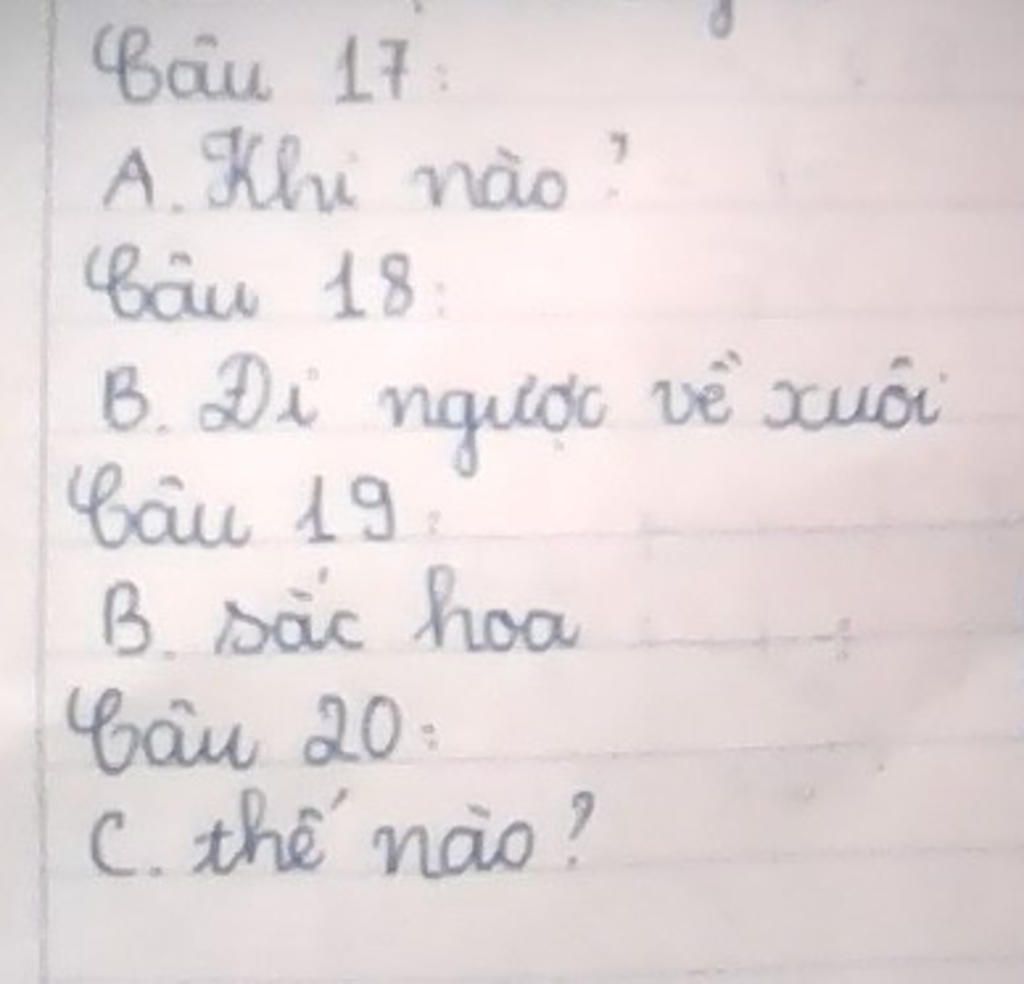 Câu 17:
A. Khi nào?
Câu 18:
B. Đi ngược về xuôi
Câu 19:
B. sắc hoa
Câu 20:
C. thế nào?